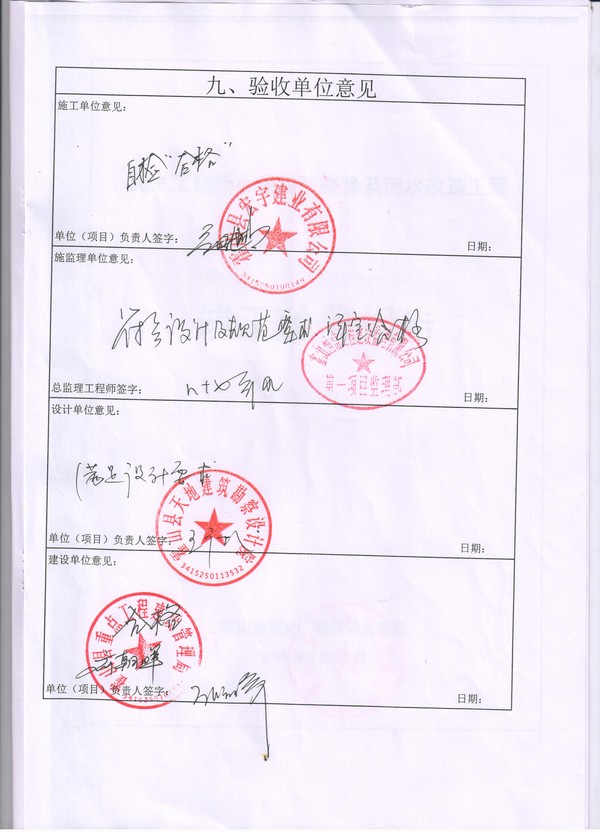 九、验收单位意见
施工单位意见:
自检“合格”
县宏宇建业有限公司
3415250100149
单位（项目）负责人签字:
日期:
施监理单位意见:
符合设计及规范要求,
第一项目监理部
总监理工程师签字:
日期:
设计单位意见:
满足设计要求
霍山县天地建筑勘察设计院
3415250113532
单位（项目）负责人签字:
日期:
建设单位意见:
合格
霍山县重点工程建设管理局
单位（项目）负责人签字:
日期: